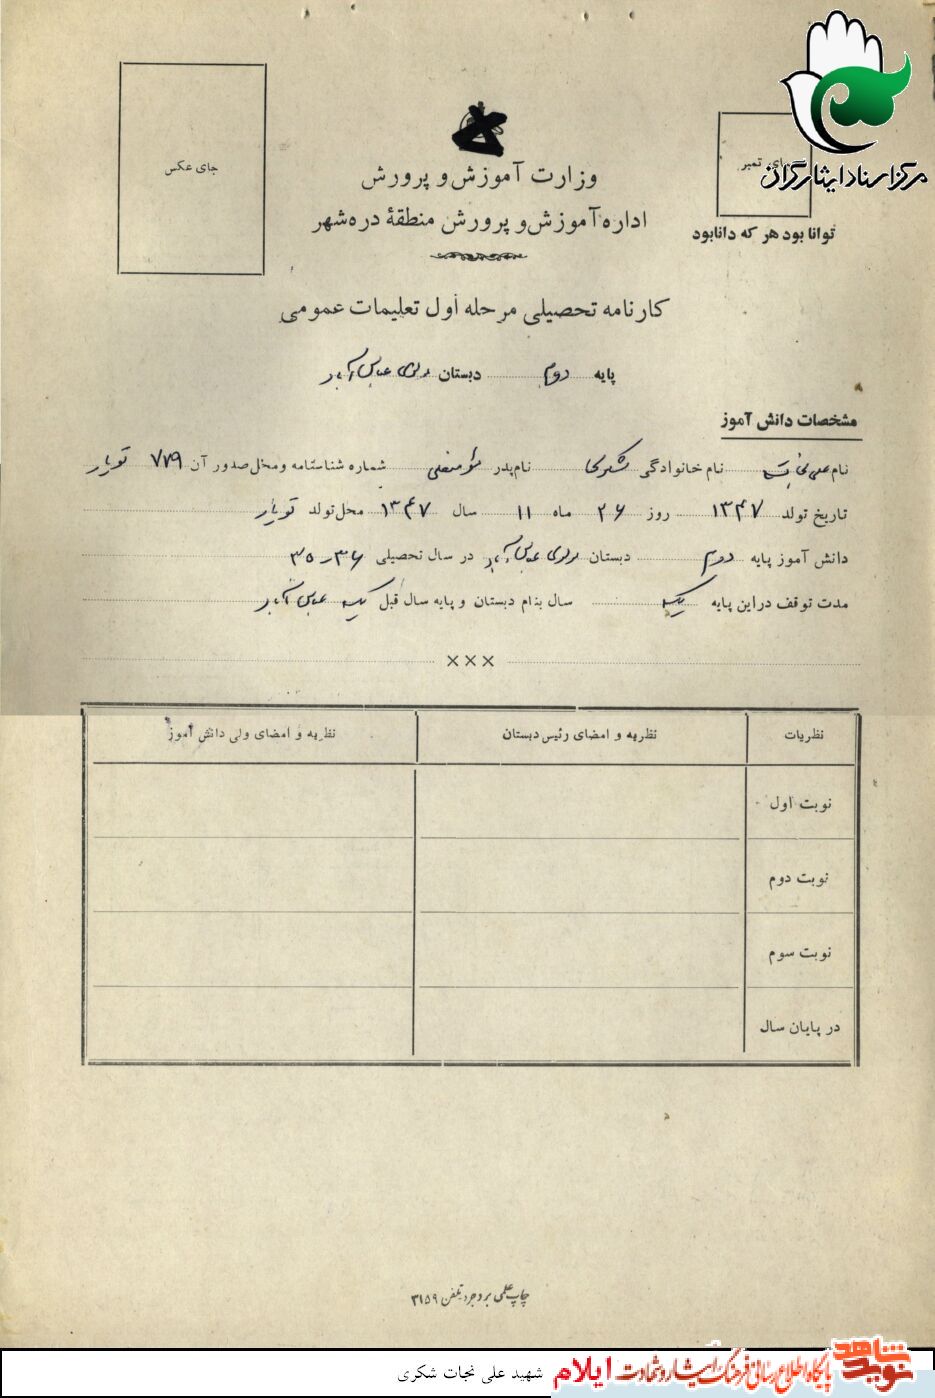 جای عکس
جای تمبر
مرکز اسناد ایثارگران
وزارت آموزش و پرورش
اداره آموزش و پرورش منطقهٔ دره‌شهر
توانا بود هر که دانا بود
کارنامه تحصیلی مرحله اول تعلیمات عمومی
پایه دوم دبستان مولوی عباس آباد
مشخصات دانش آموز
نام علی نجات نام خانوادگی شکری نام پدر شماره شناسنامه و محل صدور آن ۷۷۹
تاریخ تولد ۱۳۴۷ روز ۲۶ ماه ۱۱ سال ۱۳۴۷ محل تولد
دانش آموز پایه دوم دبستان مولوی عباس آباد در سال تحصیلی ۳۶-۳۵
مدت توقف در این پایه یک سال بنام دبستان و پایه سال قبل یک عباس آباد
×××
نظریات نظریه و امضای رئیس دبستان نظریه و امضای ولی دانش آموز
نوبت اول
نوبت دوم
نوبت سوم
در پایان سال
چاپ علمی بروجرد تلفن ۳۱۵۹
نوید شاهد پایگاه اطلاع رسانی فرهنگ ایثار و شهادت ایلام شهید علی نجات شکری